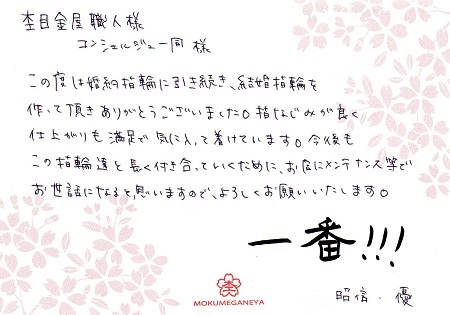 杢目金屋職人様
コンシェルジュ一同様
この度は婚約指輪に引き続き、結婚指輪を
作って頂きありがとうございました。指なじみが良く
仕上がりも満足で気に入って着けています。今後も
この指輪達と長く付き合っていくために、お店にメンテナンス等で
お世話になると思いますので、よろしくお願いいたします。
一番!!!
MOKUMEGANEYA
昭信・優